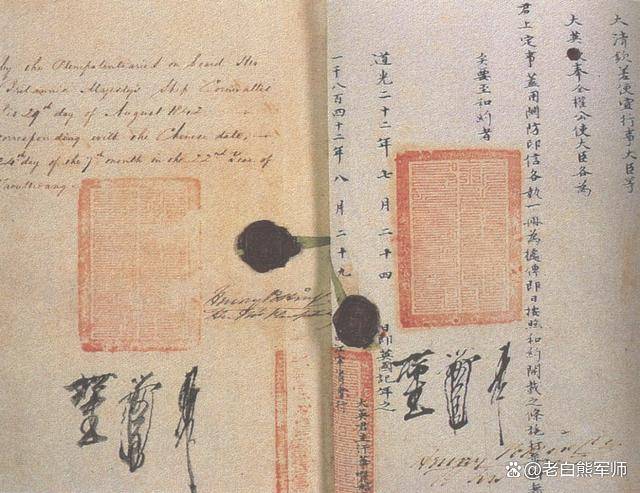 by the Plenipotentiaries on board Her
Britannic Majesty's Ship Cornwallis
this 29th day of August 1842
corresponding with the Chinese date,
24th day of the 7th month in the 22nd Year of
Taoukwang.
Henry Pottinger
大清欽差便宜行事大臣等
大英奉全權公使大臣各為
君上定事蓋用關防印信各執一冊為據俾即日按照和約開載之條施行
矣要至和約者
道光二十二年七月二十四日即英國記年之
一千八百四十二年八月二十九
大英君主汗華
Henry Pottinger
老白熊军师